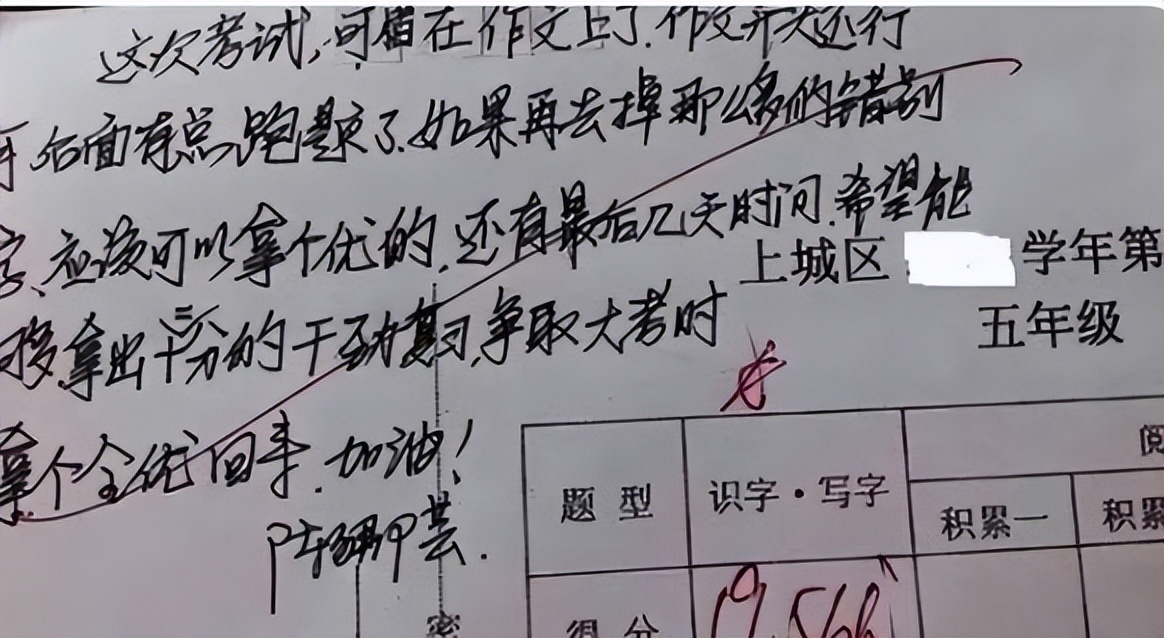 这次考试,可惜在作文上了.作文开头还行
后面有点跑题了.如果再去掉那么多的错别
字、应该可以拿个优的.还有最后几天时间.希望能
够拿出十二分的干劲复习,争取大考时
拿个全优回来.加油!
上城区 学年第
五年级
题 型 识字·写字 阅
积累一 积累
得 分
密